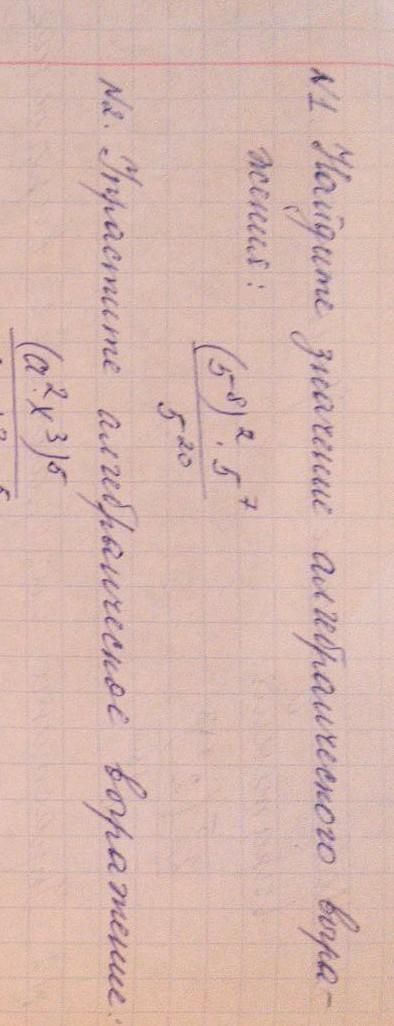 №1. Найдите значение алгебраического выра-
жения:
(5⁸)² · 5⁷
5²⁰
№2. Упрастите алгебраическое выражение:
(a² x³)⁵